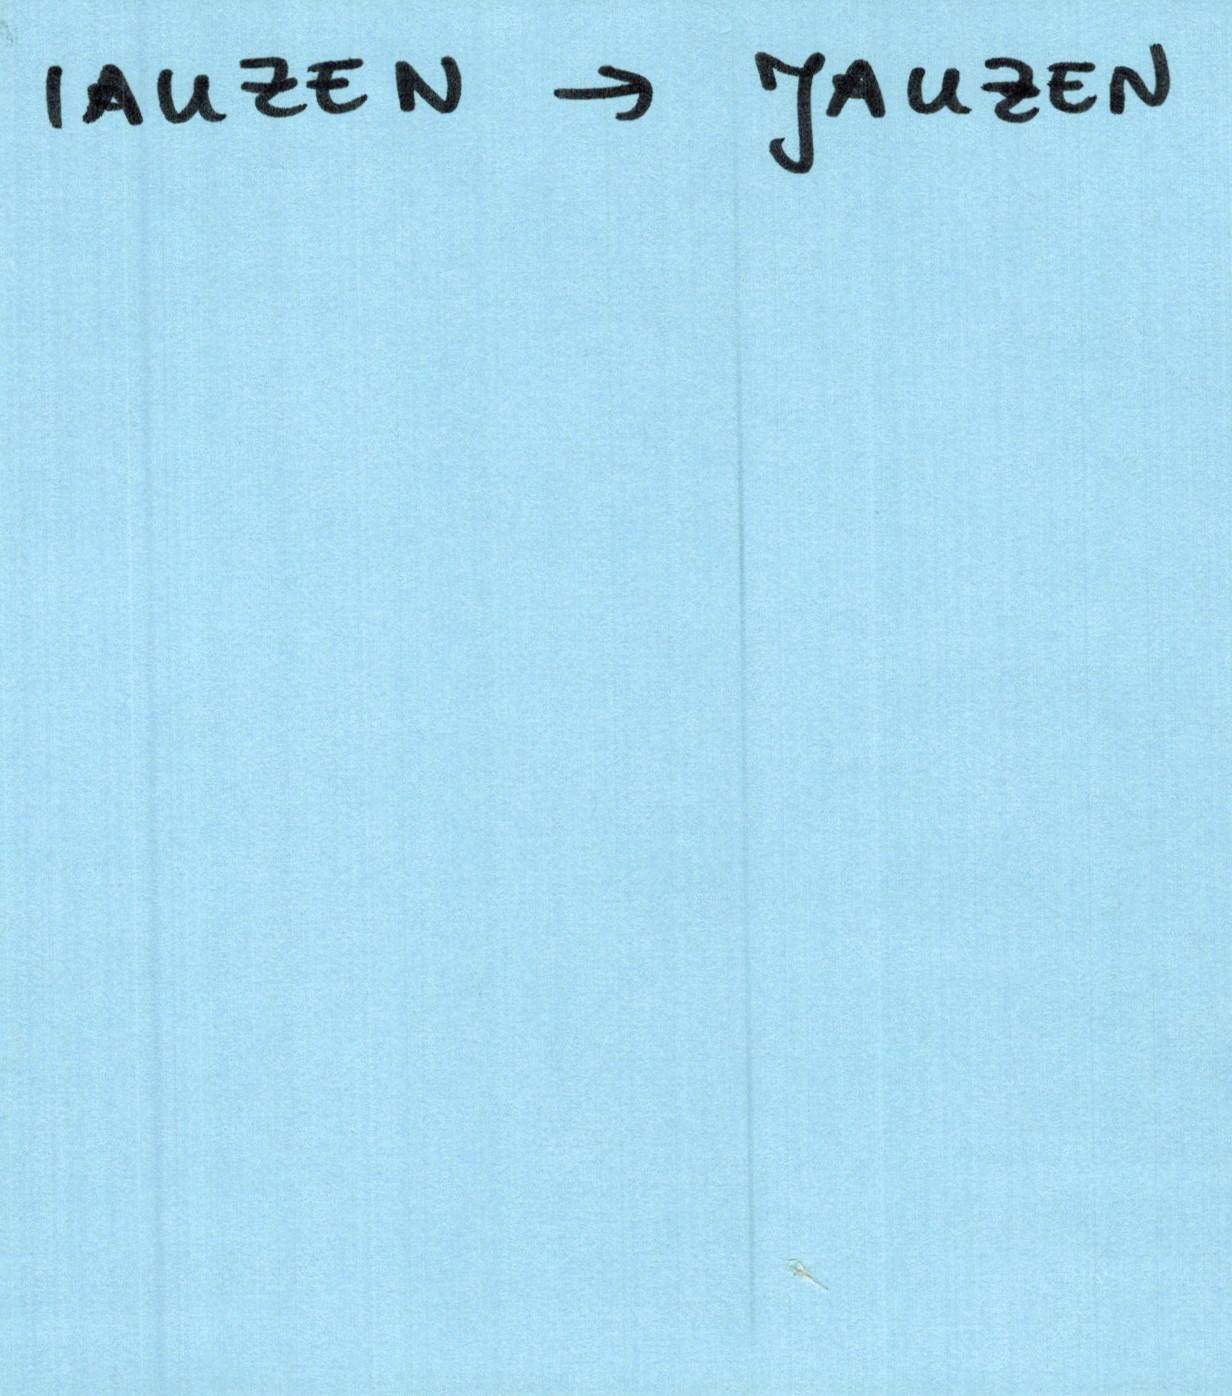 IAUZEN → JAUZEN